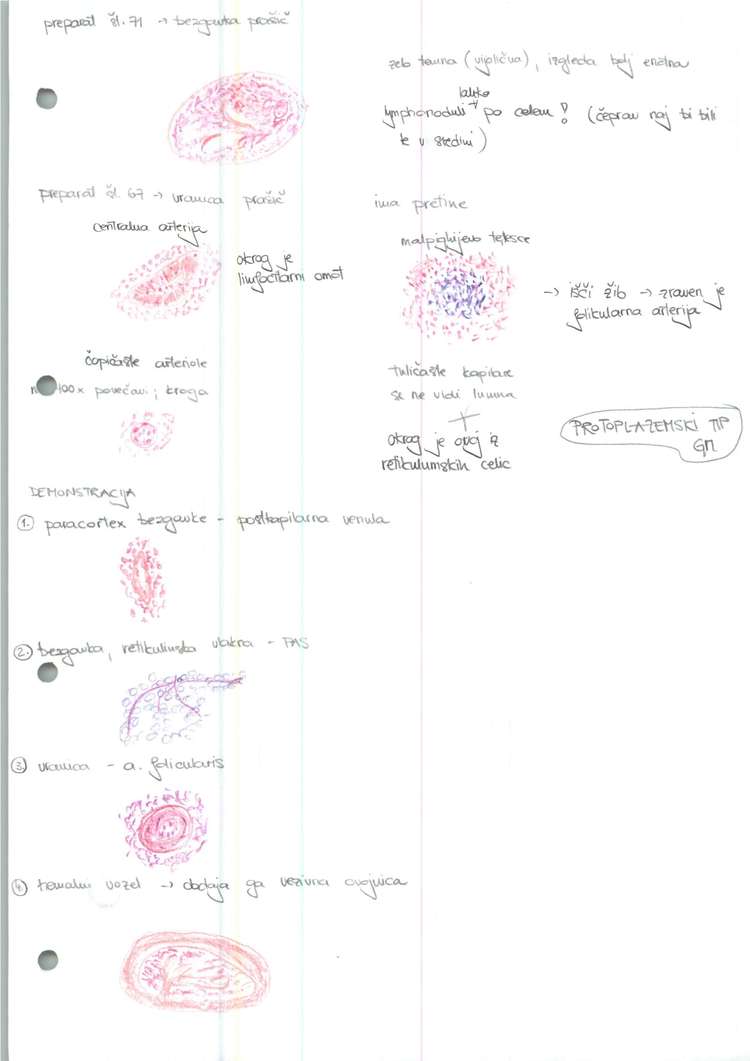 preparat št. 71 → bezgavka prašič
zelo temna (vijolična), izgleda bolj enotna
lahko
lymphonoduli po celem! (čeprav naj bi bili
le v sredini)
preparat št. 67 → vranica prašič
ima pretine
centralna arterija
okrog je
limfocitarni omot
malpighijevo telesce
→ išči žib → zraven je
folikularna arterija
čopičaste arteriole
100x povečav.; kroga
tuličaste kapilare
se ne vidi lumna
+
okrog je ovoj iz
retikulumskih celic
PROTOPLAZEMSKI TIP
GM
DEMONSTRACIJA
1. paracortex bezgavke - postkapilarna venula
2. bezgavka, retikulinska vlakna - PAS
3. vranica - a. folicularis
4. hemalni vozel → obdaja ga vezivna ovojnica